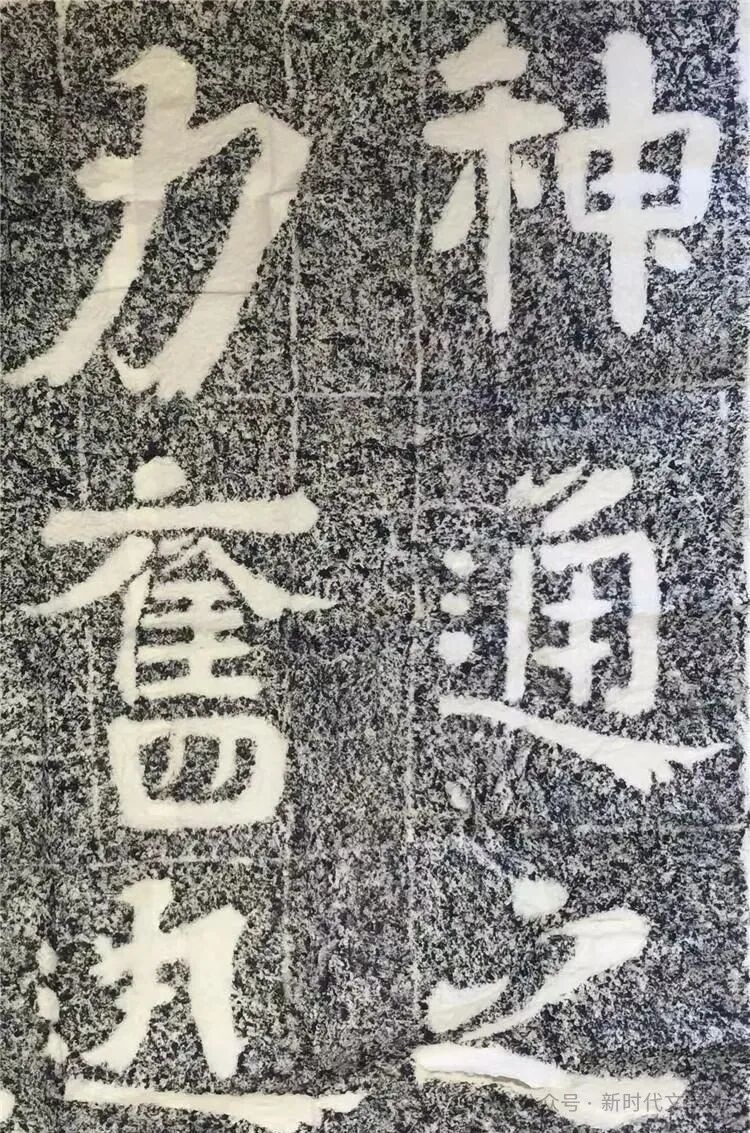 神通之
力奮迅
公众号 · 新时代文